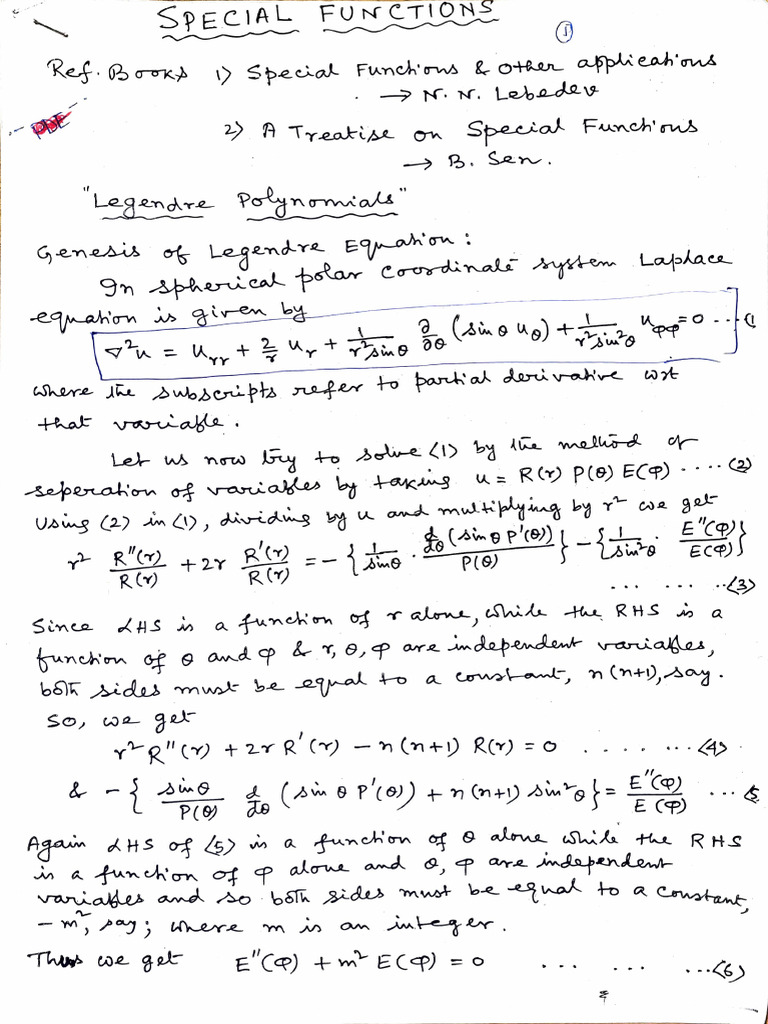 SPECIAL FUNCTIONS
1
Ref. Books 1) Special Functions & Other applications
→ N. N. Lebedev
PDE
2) A Treatise on Special Functions
→ B. Sen.
"Legendre Polynomials"
Genesis of Legendre Equation:
In spherical polar coordinate system Laplace
equation is given by
∇²u = u_rr + 2/r u_r + 1/(r² sin θ) ∂/∂θ (sin θ u_θ) + 1/(r² sin² θ) u_φφ = 0 ... (1
where the subscripts refer to partial derivative wrt
that variable.
Let us now try to solve (1) by the method of
seperation of variables by taking u = R(r) P(θ) E(φ) .... (2)
Using (2) in (1), dividing by u and multiplying by r² we get
r² R''(r)/R(r) + 2r R'(r)/R(r) = - { 1/sin θ · d/dθ (sin θ P'(θ))/P(θ) } - { 1/sin² θ · E''(φ)/E(φ) }
... ... ... (3)
Since LHS is a function of r alone, while the RHS is a
function of θ and φ & r, θ, φ are independent variables,
both sides must be equal to a constant, n(n+1), say.
So, we get
r² R''(r) + 2r R'(r) - n(n+1) R(r) = 0 ..... ... (4)
& - { sin θ/P(θ) d/dθ (sin θ P'(θ)) + n(n+1) sin² θ } = E''(φ)/E(φ) ... (5
Again LHS of (5) is a function of θ alone while the RHS
is a function of φ alone and θ, φ are independent
variables and so both sides must be equal to a constant,
- m², say; where m is an integer.
Thus we get E''(φ) + m² E(φ) = 0 ... ... ... (6)